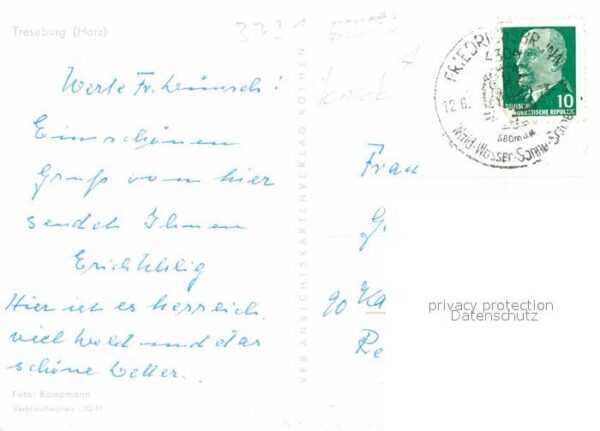 Treseburg (Harz)
Werte Fr. Wünsch!
Ein schönen
Gruß vom hier
sendet Ihnen
Erich
Hier ist es herrlich,
viel Wald und das
schöne Wetter.
Foto: Kampmann
Verbraucherpreis -,20 M
VEB ANSICHTSKARTENVERLAG KÖTHEN
FRIEDRICHSBRUNN
4304
12.6.
580 m ü.M
Wald-Wasser-Sonne-
DEUTSCHE
DEMOKRATISCHE REPUBLIK
10
Frau
G
90 Ka
Re
privacy protection
Datenschutz